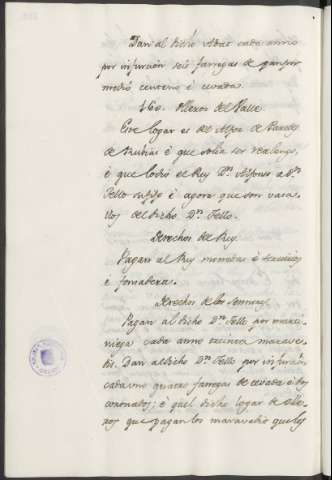 Dan al dicho Abbat cada anno
por infurción seis fanegas de pan por
medio centeno é cevada.
160. Olleros del Valle
Este logar es del Alfoz de Paredes
de Rubias é que solia ser realengo,
é que lo dió el Rey Dn. Alfonso a Dn.
Tello su fijo é agora que son vasa-
llos del dicho Dn. Tello.
Derechos del Rey.
Pagan al Rey monedas é servicios
é fonsadera.
Derechos de los Sennores
Pagan al dicho Dn. Tello por marti-
niega cada anno treinta marave-
dis. Dan al dicho Dn. Tello por infurción
cada uno quatro fanegas de cevada é dos
coronados; é quel dicho logar de Olle-
ros que pagan los maravedis que les